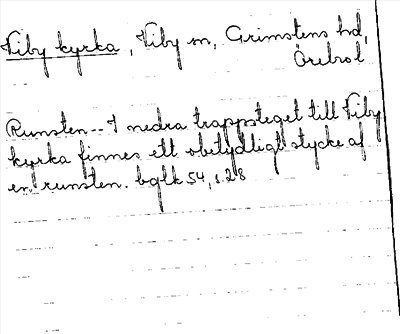 Viby kyrka, Viby sn, Grimstens hd,
Örebro l
Runsten.- I nedra trappsteget till Viby
kyrka finnes ett obetydligt stycke af
en runsten. bglk 54, s.28